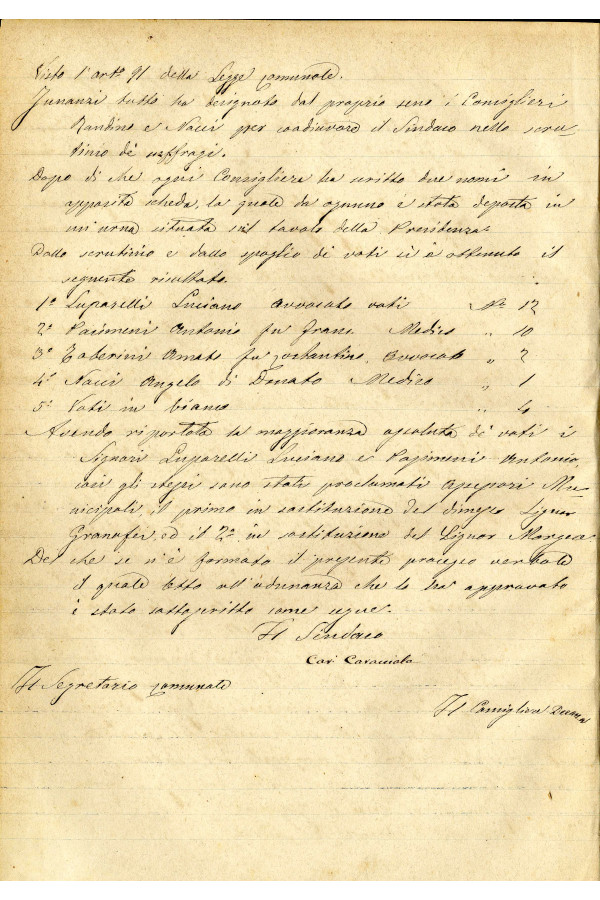 Visto l'arto 91 della Legge comunale.
Innanzi tutto ha designato dal proprio seno i Consiglieri
Bandino e Nacci per coadiuvare il Sindaco nello scru-
tinio di suffragi.
Dopo di che ogni Consigliere ha scritto due nomi in
apposita scheda, la quale da ognuno è stata deposta in
un'urna situata sul tavolo della Presidenza.
Dallo scrutinio e dallo spoglio di voti si è ottenuto il
seguente risultato.
1o Luparelli Luciano Avvocato voti No 12
2o Pasimeni Antonio fu Franc. Medico " 10
3o Taberini Amato fu Costantino, Avvocato " 7
4o Nacci Angelo di Donato Medico " 1
5o Voti in bianco " 4
Avendo riportata la maggioranza assoluta di voti i
Signori Luparelli Luciano e Pasimeni Antonio,
così gli stessi sono stati proclamati Assessori Mu-
nicipali il primo in sostituzione del dimesso Signor
Granafei, ed il 2o in sostituzione del Signor
De che se n'è formato il presente processo verbale
il quale letto all'adunanza che lo ha approvato
è stato sottoscritto come segue.
Il Sindaco
Cav. Caracciolo
Il Segretario comunale
Il Consigliere